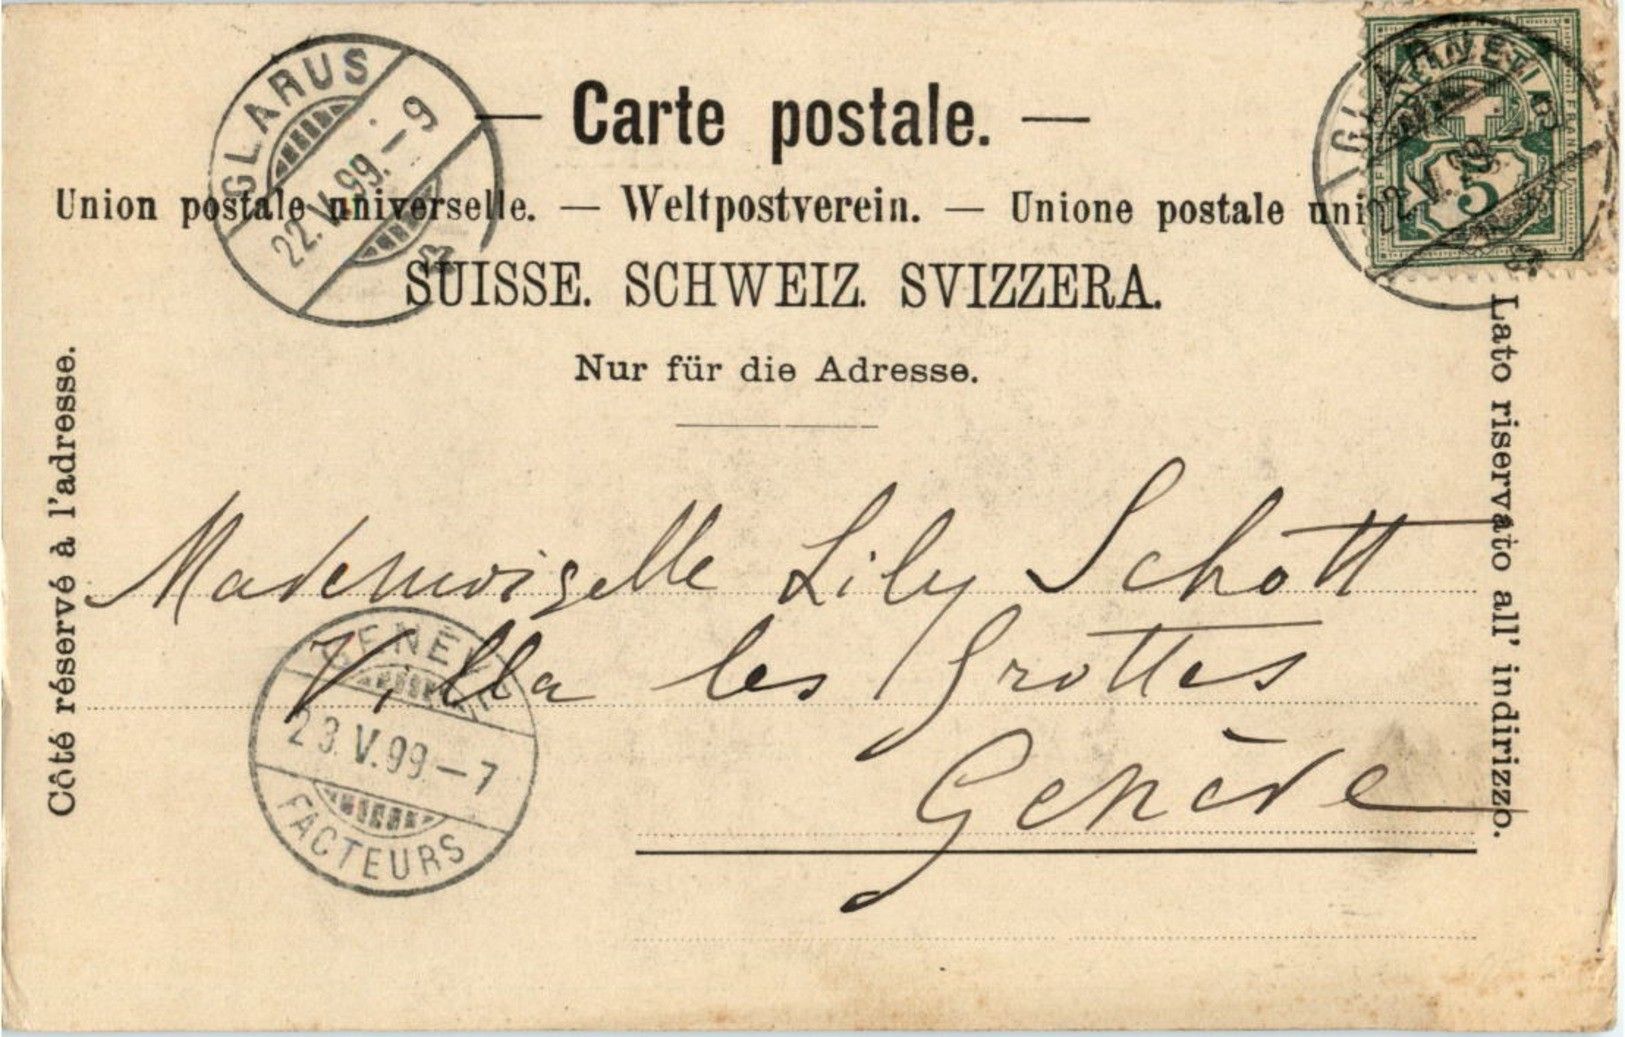 GLARUS
22.V.99.–9
— Carte postale. —
Union postale universelle. — Weltpostverein. — Unione postale uni
SUISSE. SCHWEIZ. SVIZZERA.
Nur für die Adresse.
Côté réservé à l'adresse.
Lato riservato all' indirizzo.
GLARUS
22.V.99
5
FRANCO
Mademoiselle Lily Schott
Villa les Grottes
Genève
GENÈVE
23.V.99.–7
FACTEURS